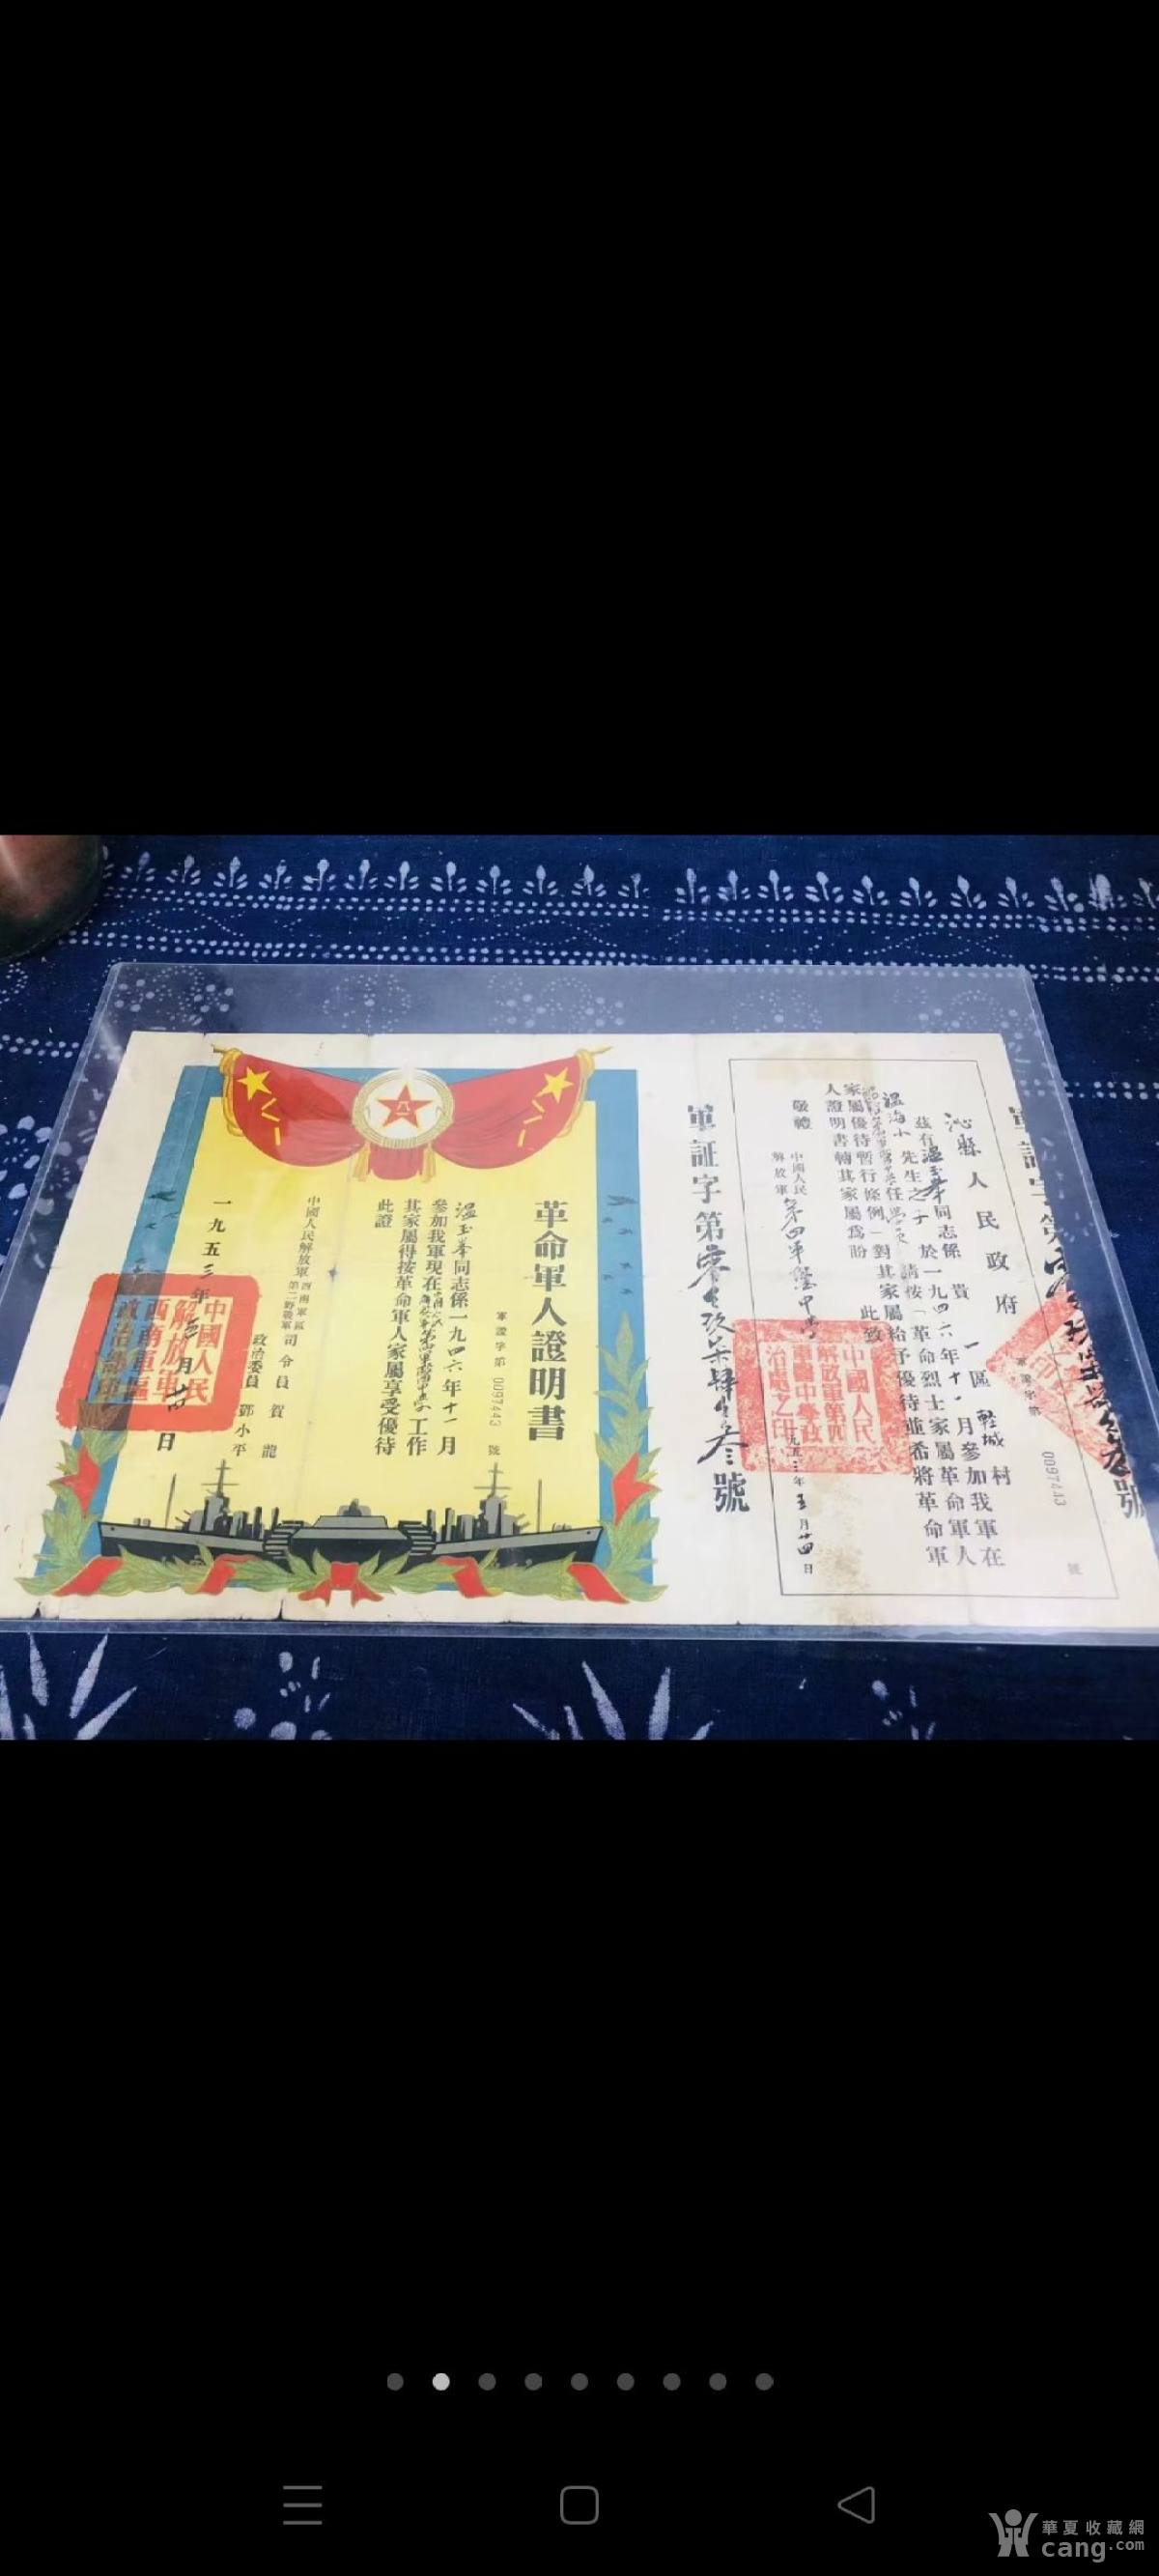 革命軍人證明書
軍證字第 0097443 號
温玉峯同志係一九四六年十一月
參加我軍現在
工作
其家屬得按革命軍人家屬享受優待
此證
中國人民解放軍
西南軍區
第二野戰軍
司令員 賀龍
政治委員 鄧小平
一九五三年
月
日
中國人民
解放軍
西南軍區
政治部印
軍証字第零
玖柒肆
叁號
沁縣人民政府
茲有温玉峯同志係貴一區輕城村
温海小先生之子於一九四六年十一月參加我軍在
任
請按「革命烈士家屬革命軍人
家屬優待暫行條例」對其家屬給予優待並希將革命軍
人證明書轉其家屬為盼
此致
敬禮
中國人民
解放軍
第四軍
一九五三年五月廿四日
軍證字第
0097443
號
中國人民
解放軍第四
軍醫中學政
治處之印
號
八一
華夏收藏網
cang.com